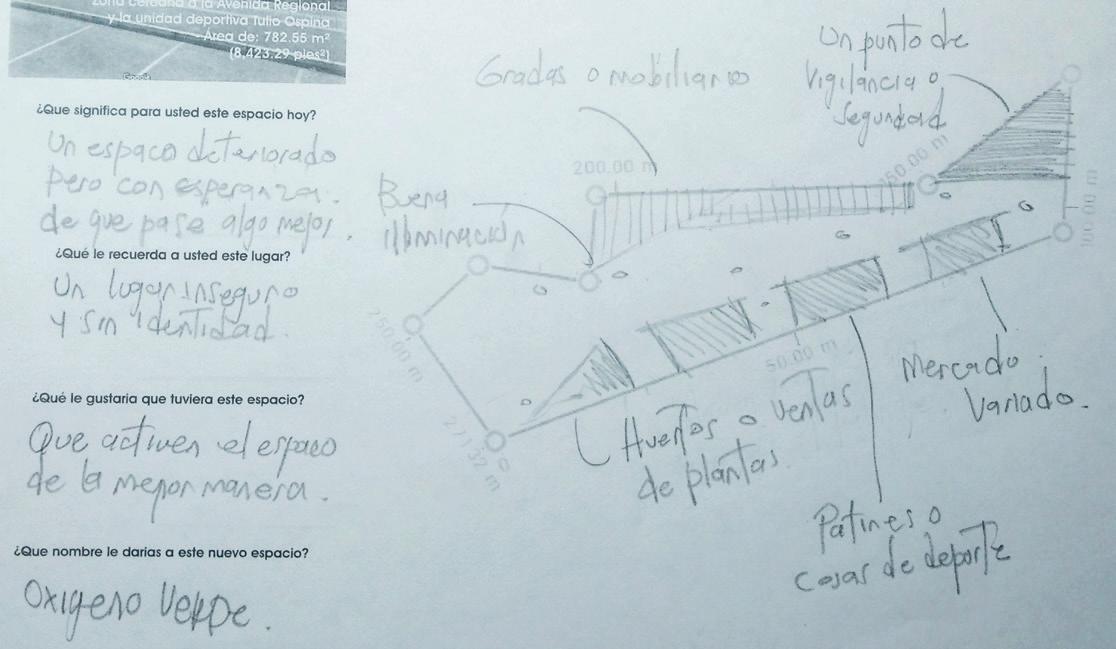 zona cercana a la Avenida Regional
y la unidad deportiva Tulio Ospina
Área de: 782.55 m²
(8,423.29 pies²)
Google
¿Que significa para usted este espacio hoy?
Un espaco deteriorado
pero con esperanza.
de que pase algo mejor.
¿Qué le recuerda a usted este lugar?
Un lugar inseguro
y sin identidad.
¿Qué le gustaria que tuviera este espacio?
Que activen el espacio
de la mejor manera.
¿Que nombre le darias a este nuevo espacio?
Oxigeno Verde.
Gradas o mobiliario
Un punto de
vigilancia o
seguridad
200.00 m
50.00 m
100.00 m
Buena
iluminación
250.00 m
271.32 m
50.00 m
Huertos o ventas
de plantas.
Mercado
variado.
Patines o
cosas de deporte